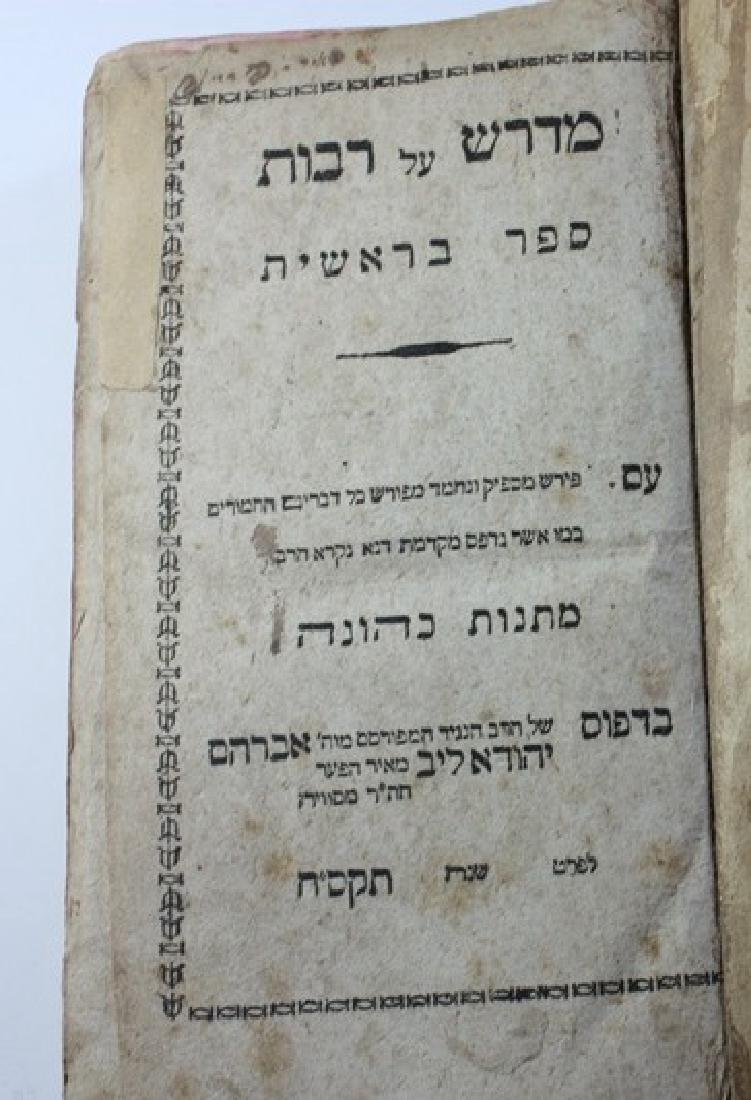 מדרש על רבות
ספר בראשית
עם. פירש מספיק ונחמד מפורש כל דברים החמורים
כמו אשר נדפס מקדמת דנא נקרא הרב
מתנות כהונה
בדפוס של הרב הנגיד המפורסם מוה' אברהם
יהודא ליב מאיר הפער
חת"ר
לפרט שנת תקס״ח